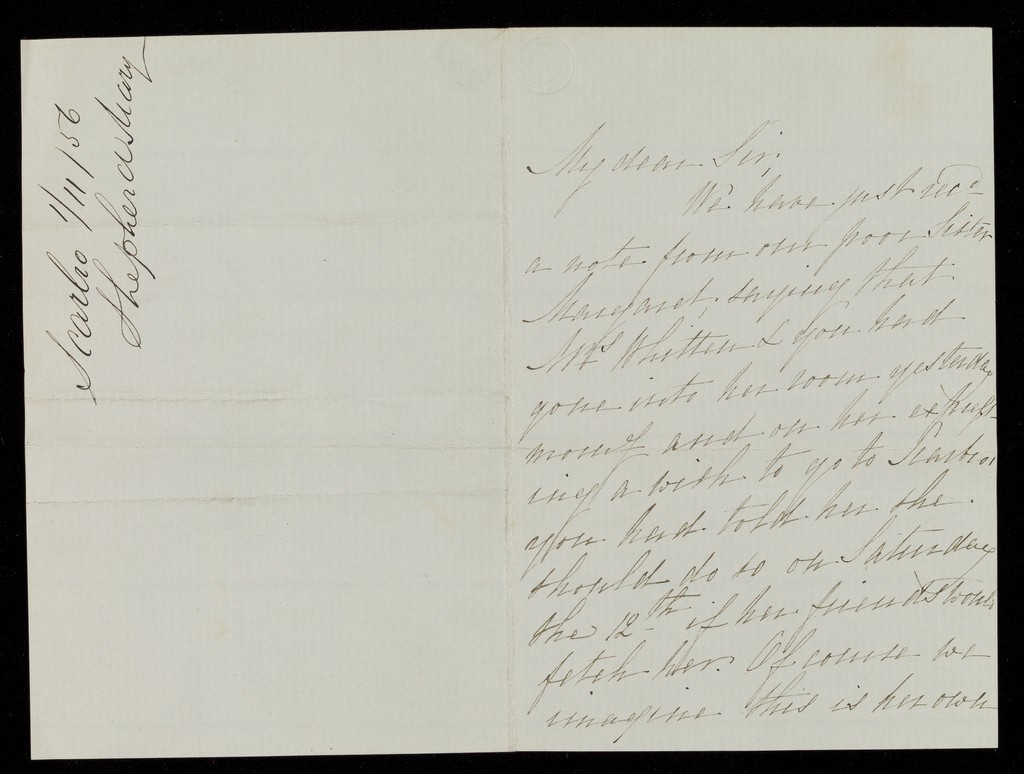 Scarbro 1/11/56
Shepherd Mary
My dear Sir,
We have just recd
a note from our poor Sister
Margaret, saying that
Mrs Whitten & you had
gone into her room yesterday
morng and on her express-
ing a wish to go to Scarbro'
you had told her she
should do so on Saturday
the 12th if her friends would
fetch her. Of course we
imagine this is her own